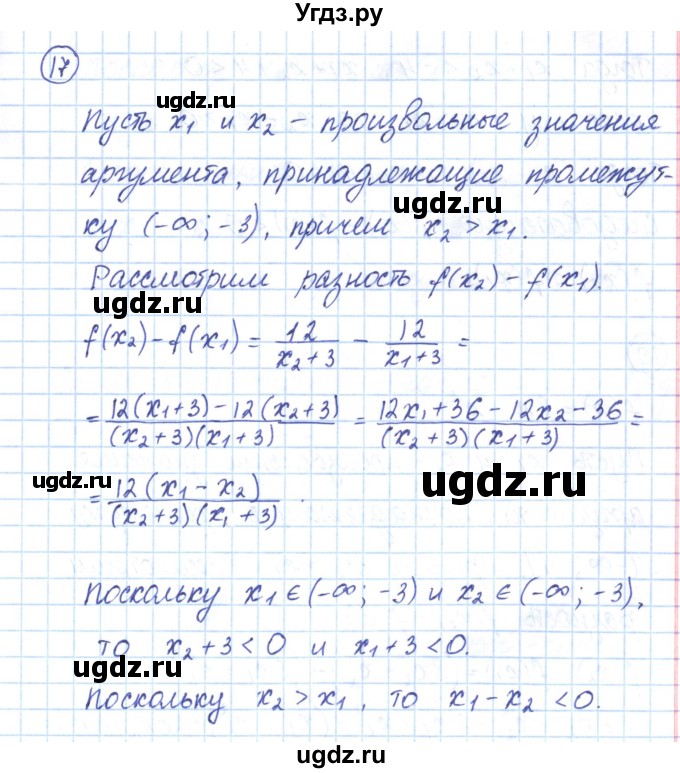 Угдз.ру
17
ugdz.ru
Пусть x₁ и x₂ – произвольные значения
аргумента, принадлежащие промежут-
ugdz.ru
ку (-∞; -3), причем x₂ > x₁.
Рассмотрим разность f(x₂) - f(x₁).
ugdz.ru
f(x₂) - f(x₁) = 12/(x₂+3) - 12/(x₁+3) =
= (12(x₁+3) - 12(x₂+3))/((x₂+3)(x₁+3)) = (12x₁+36-12x₂-36)/((x₂+3)(x₁+3)) =
ugdz.ru ugdz.ru
= 12(x₁ - x₂)/((x₂+3)(x₁+3)).
Поскольку x₁ ∈ (-∞; -3) и x₂ ∈ (-∞; -3),
то x₂+3 < 0 и x₁+3 < 0.
ugdz.ru
Поскольку x₂ > x₁, то x₁ - x₂ < 0.
ugdz.ru